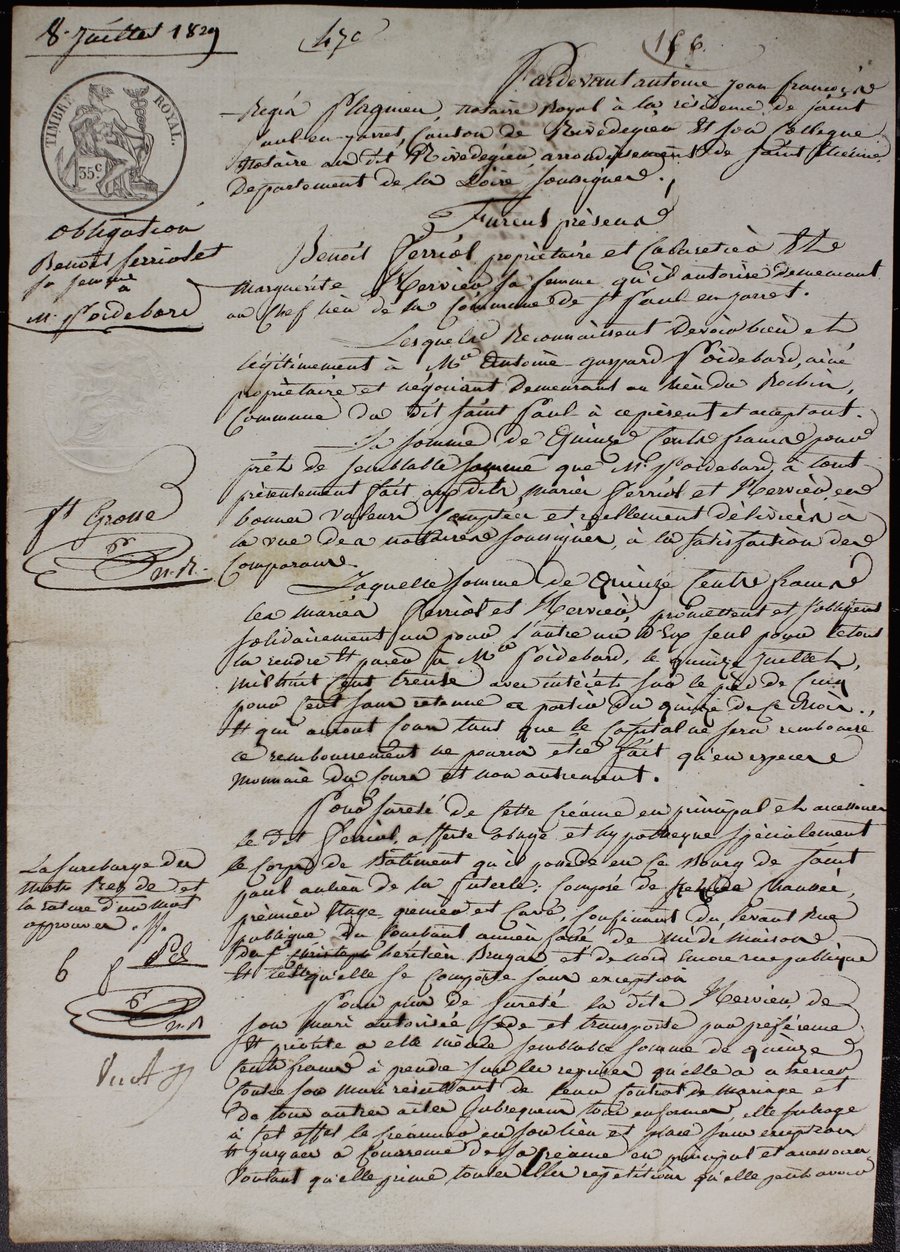 8. Juillet 1829
47c
156.
TIMBRE ROYAL.
35c
Pardevant antoine Jean François
Regis Flagmeu, notaire Royal à la résidence de saint
paul-en-jarret, Canton de Rivedegier Et son Collegue
Notaire au dit Rivedegier arrondissement de Saint Etienne
Departement de la Loire soussignés./
Furent présens
Benoit Ferriol propriétaire et Cabaretier Et
Marguerite Hervier sa femme qu'il autorise demeurant
au Chef lieu de la Commune de St Paul en jarret.
Obligation
Benoit ferriol et
sa femme
à
Mr Poidebard
Lesquels Reconnaissent Devoir bien et
légitimement à Mre Antoine gaspard Poidebard, ainé
propriétaire et négociant demeurant au lieu du
Commune du dit Saint Paul à ce présent et acceptant.
La somme de Quinze Cents francs pour
prêt de semblable somme que Mr Poidebard, a tout
présentement fait aux dits mariés Ferriol et Hervier, en
bonnes valeurs Comptées et réellement délivrées a
la vue des notaires soussignés, à la satisfaction des
Comparans.
ft Grosse
n.R.
Laquelle somme de Quinze Cents francs
les mariés Ferriol et Hervier, promettent et s'obligent
solidairement un pour l'autre un d'Eux seul pour le tout
la rendre Et payer à Mre Poidebard, le quinze Juillet,
mil huit Cent trente avec intérêts sur le pied de Cinq
pour Cent sans retenue à partir du quinze de Ce mois.,
Et qui auront Cours tant que le Capital ne sera remboursé
ce remboursement ne pourra être fait qu'en especes
monnaie du Cours et non autrement.
Pour sureté de Cette Créance en principal et accessoires
le dit Ferriol affecte oblige et hypotheque spécialement
le Corps de Bâtiment qu'il possède en Ce Bourg de Saint
paul au lieu de la Composé de Chaussée,
prémier Etage grenier et Cave, Confinant du levant Rue
publique du Couchant de midi maison
héritiers et de nord Encore rue publique
Et telle qu'elle se Comporte sans exception
La surcharge des
mots Rez de et
la rature d'un mot
approuvés ./.
n.R
Pour plus de sureté la dite Hervier de
son mari autorisée Cede et transporte par préférence
Et priorité a elle même semblable somme de quinze
Cents francs à prendre sur les reprises qu'elle a a exercer
Contre son mari résultant de leur Contrat de mariage et
de tous autres actes subsequens tout en forme, elle subroge
à Cet effet le Créancier en son lieu et place sans exception
Et jusques a Concurrence de sa créance en principal et accessoires
Voulant qu'elle prime toutes les répétitions qu'elle peut avoir